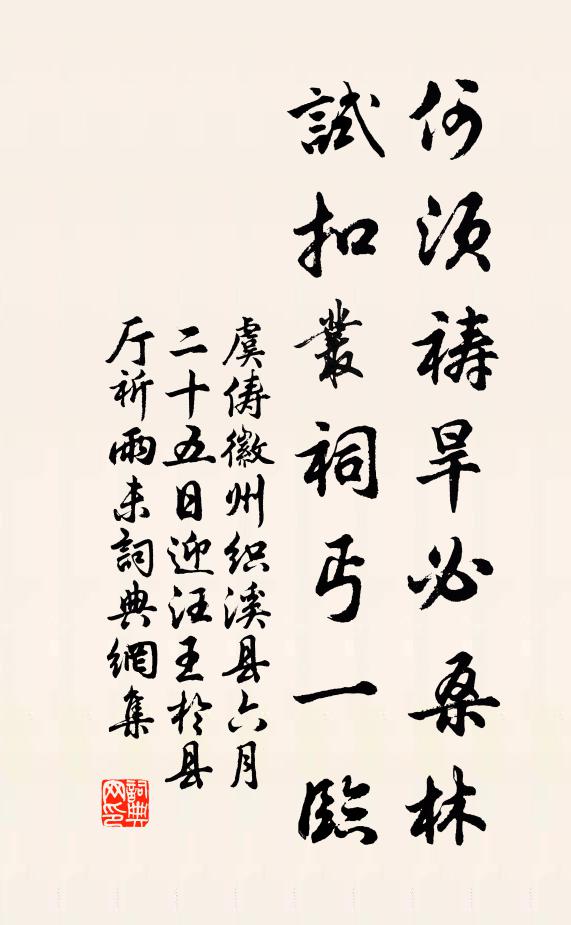 何须祷旱必桑林
試扣叢祠丐一臨
虞俦徽州织溪县六月
二十五日迎汪王於县
厅祈雨未詞典網集
詞典
网印